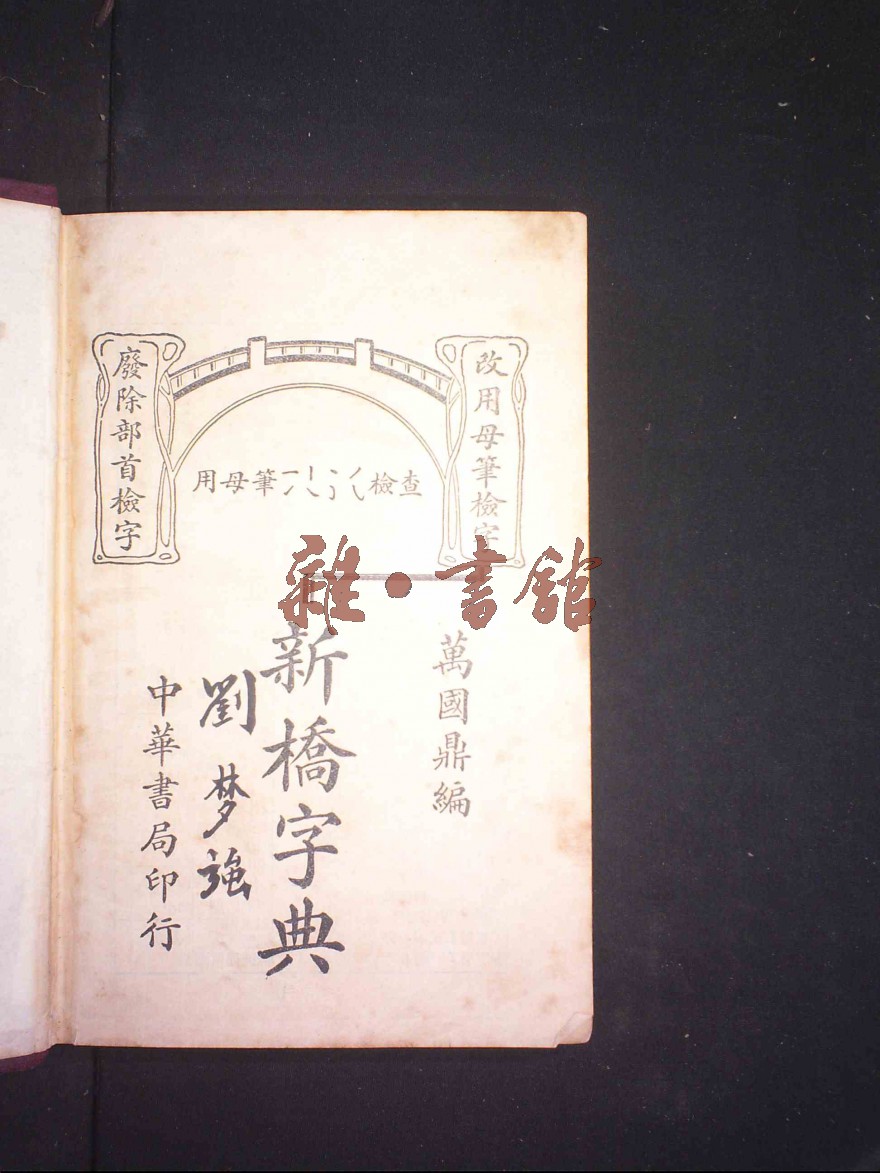 改用母筆檢字
廢除部首檢字
查檢
筆母用
雜·書館
萬國鼎編
新橋字典
劉梦強
中華書局印行